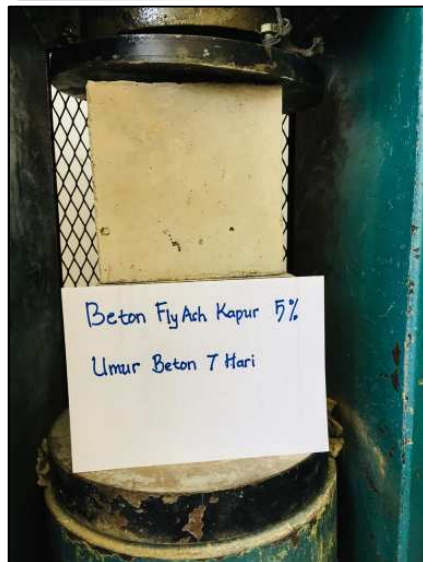 Beton Fly Ash Kapur 5%
Umur Beton 7 Hari